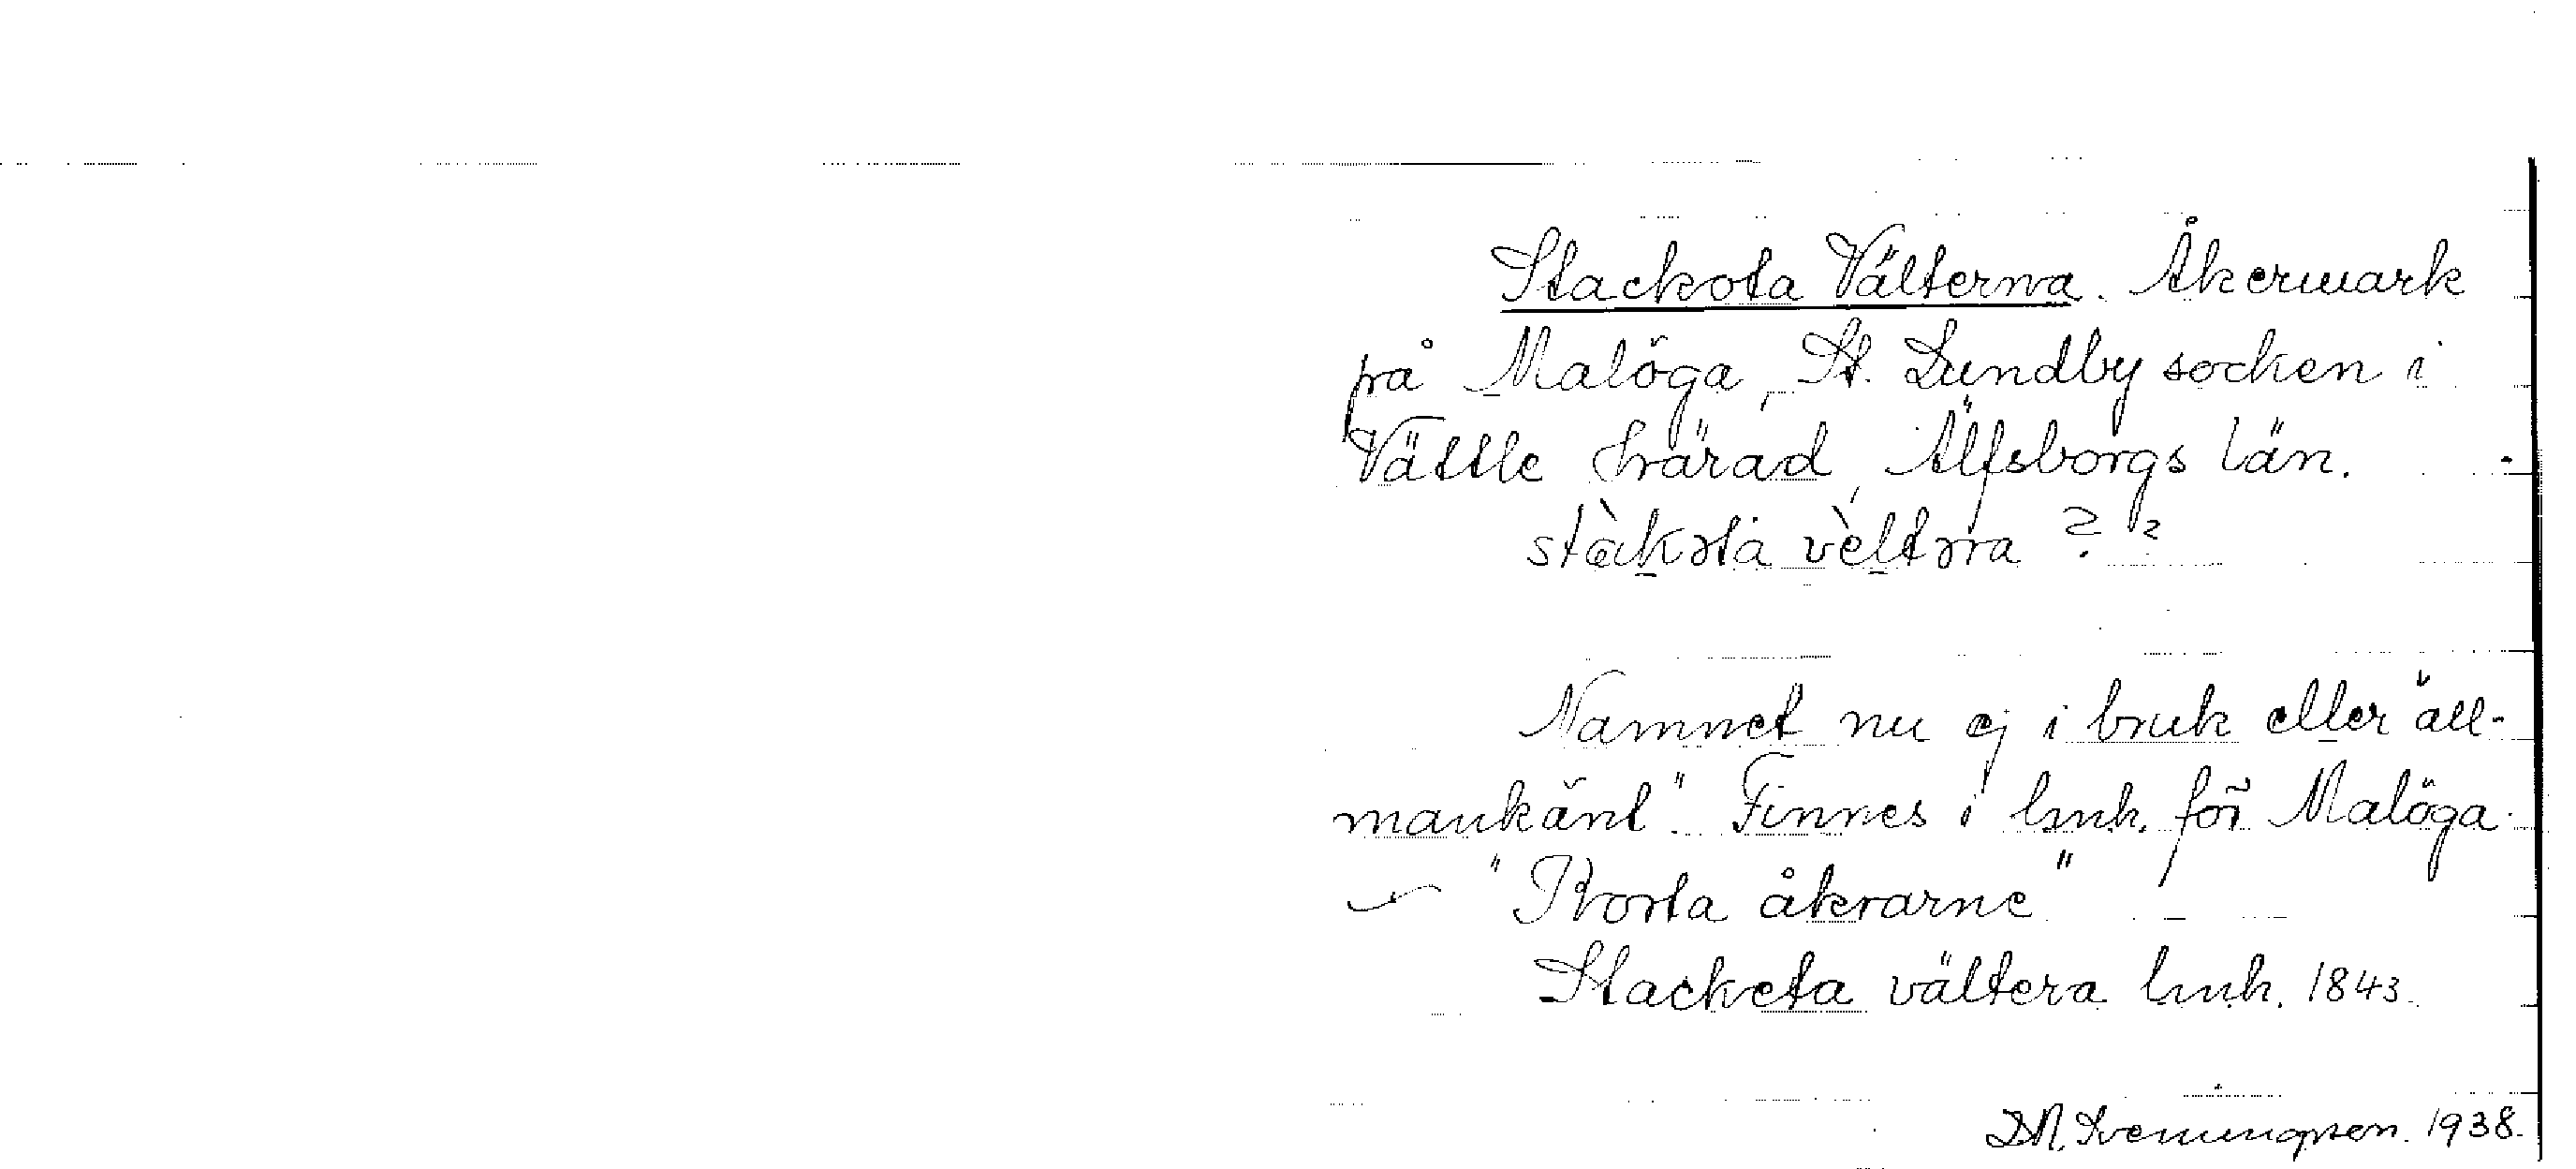 Stackota Välterna. Åkermark
på Malöga, St. Lundby socken i
Vättle härad, Älfsborgs län.
stàkəta vèltəra ? ?
Namnet nu ej i bruk eller "all-
mänkänt". Finnes i lmh. för Malöga.
"Korta åkrarne"
Stacketa vältera lmh. 1843.
1938.